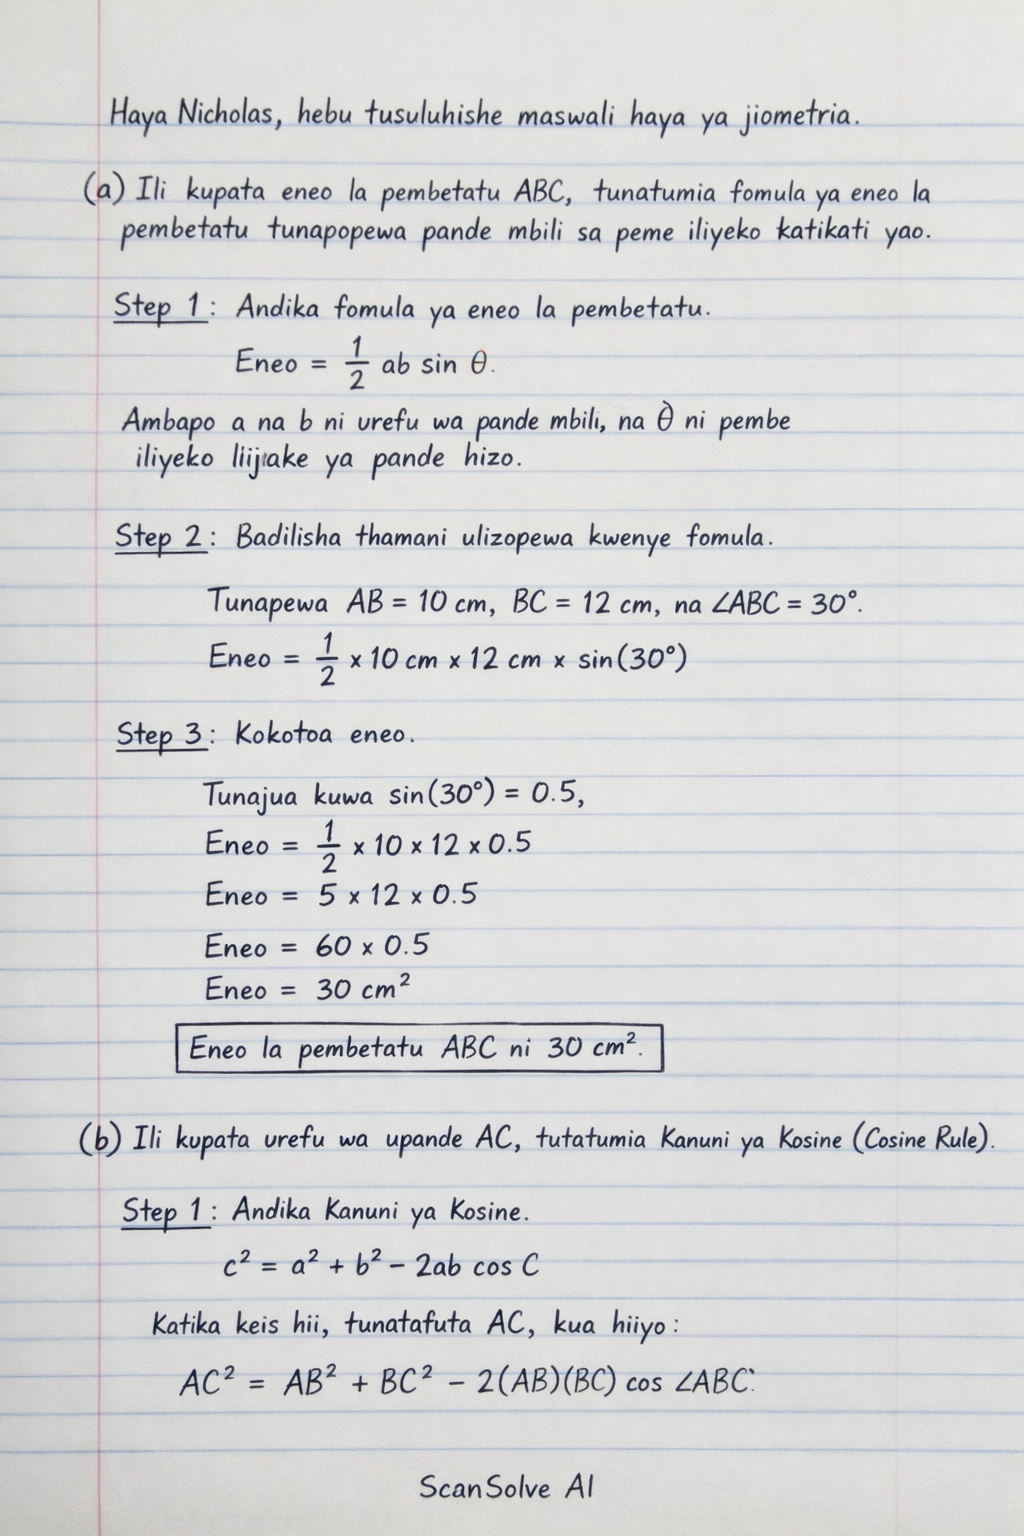 Haya Nicholas, hebu tusuluhishe maswali haya ya jiometria.
(a) Ili kupata eneo la pembetatu ABC, tunatumia fomula ya eneo la
pembetatu tunapopewa pande mbili sa peme iliyeko katikati yao.
Step 1: Andika fomula ya eneo la pembetatu.
Eneo = 1/2 ab sin θ.
Ambapo a na b ni urefu wa pande mbili, na θ̀ ni pembe
iliyeko ya pande hizo.
Step 2: Badilisha thamani ulizopewa kwenye fomula.
Tunapewa AB = 10 cm, BC = 12 cm, na ∠ABC = 30°.
Eneo = 1/2 × 10 cm × 12 cm × sin(30°)
Step 3: Kokotoa eneo.
Tunajua kuwa sin(30°) = 0.5,
Eneo = 1/2 × 10 × 12 × 0.5
Eneo = 5 × 12 × 0.5
Eneo = 60 × 0.5
Eneo = 30 cm²
Eneo la pembetatu ABC ni 30 cm².
(b) Ili kupata urefu wa upande AC, tutatumia Kanuni ya Kosine (Cosine Rule).
Step 1: Andika Kanuni ya Kosine.
c² = a² + b² – 2ab cos C
Katika keis hii, tunatafuta AC, kua hiiyo:
AC² = AB² + BC² – 2(AB)(BC) cos ∠ABC:
ScanSolve AI